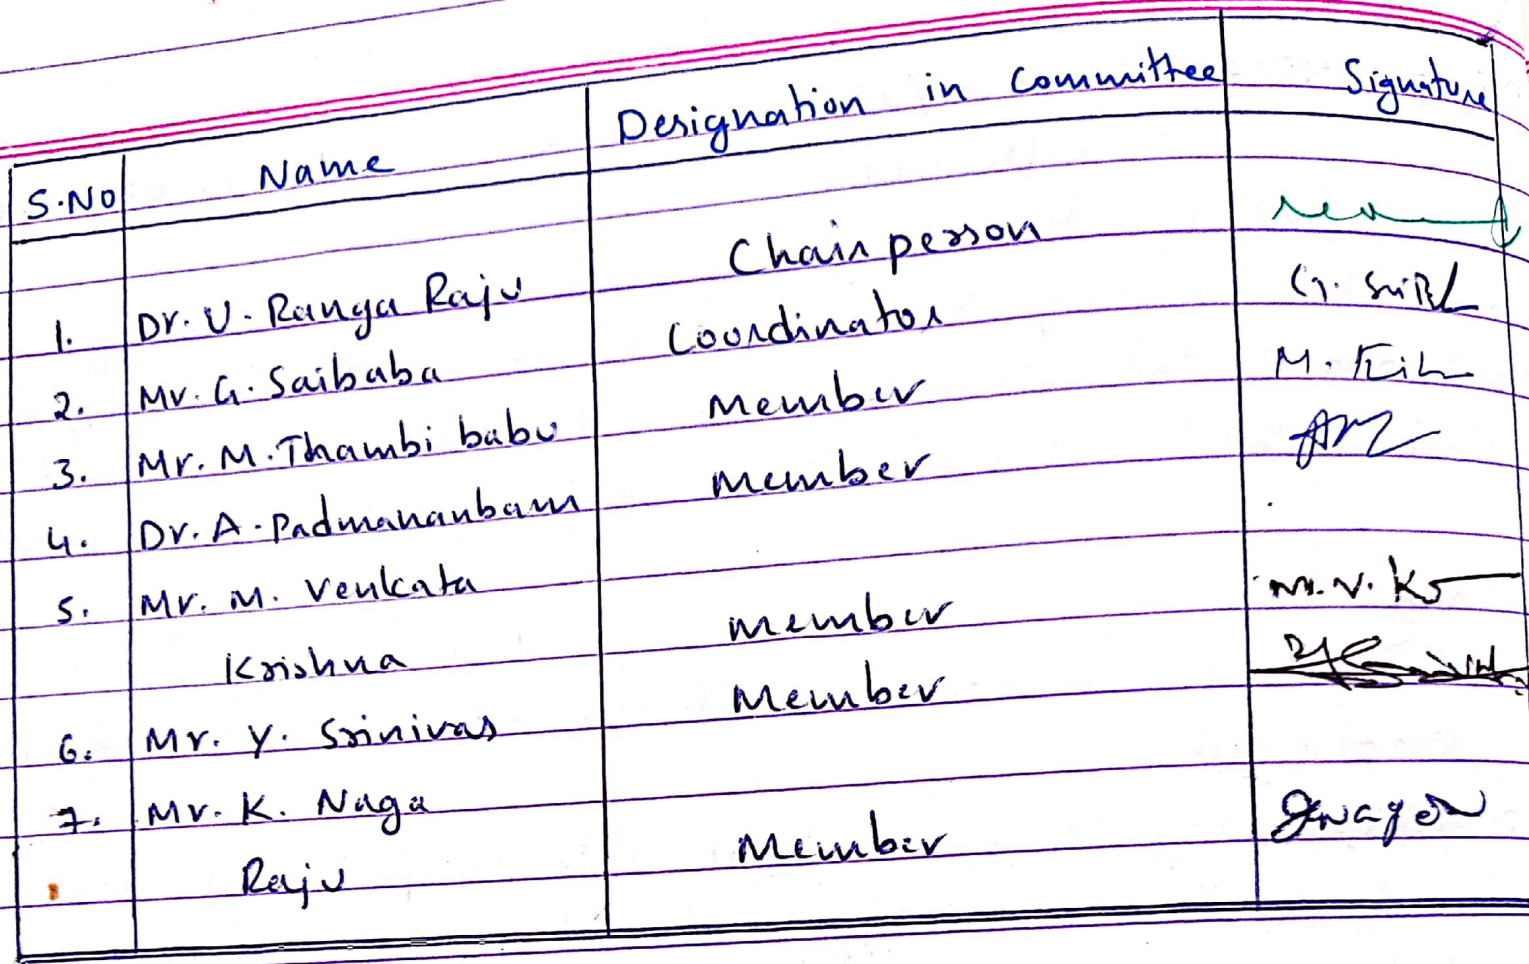 S.NO Name Designation in Committee Signature
1. Dr. U. Ranga Raju Chairperson
2. Mr. G. Saibaba Coordinator
3. Mr. M. Thambi babu Member
4. Dr. A. Padmananbam Member
5. Mr. M. Venkata
Krishna Member M. V. K
6. Mr. Y. Srinivas Member
7. Mr. K. Naga
Raju Member